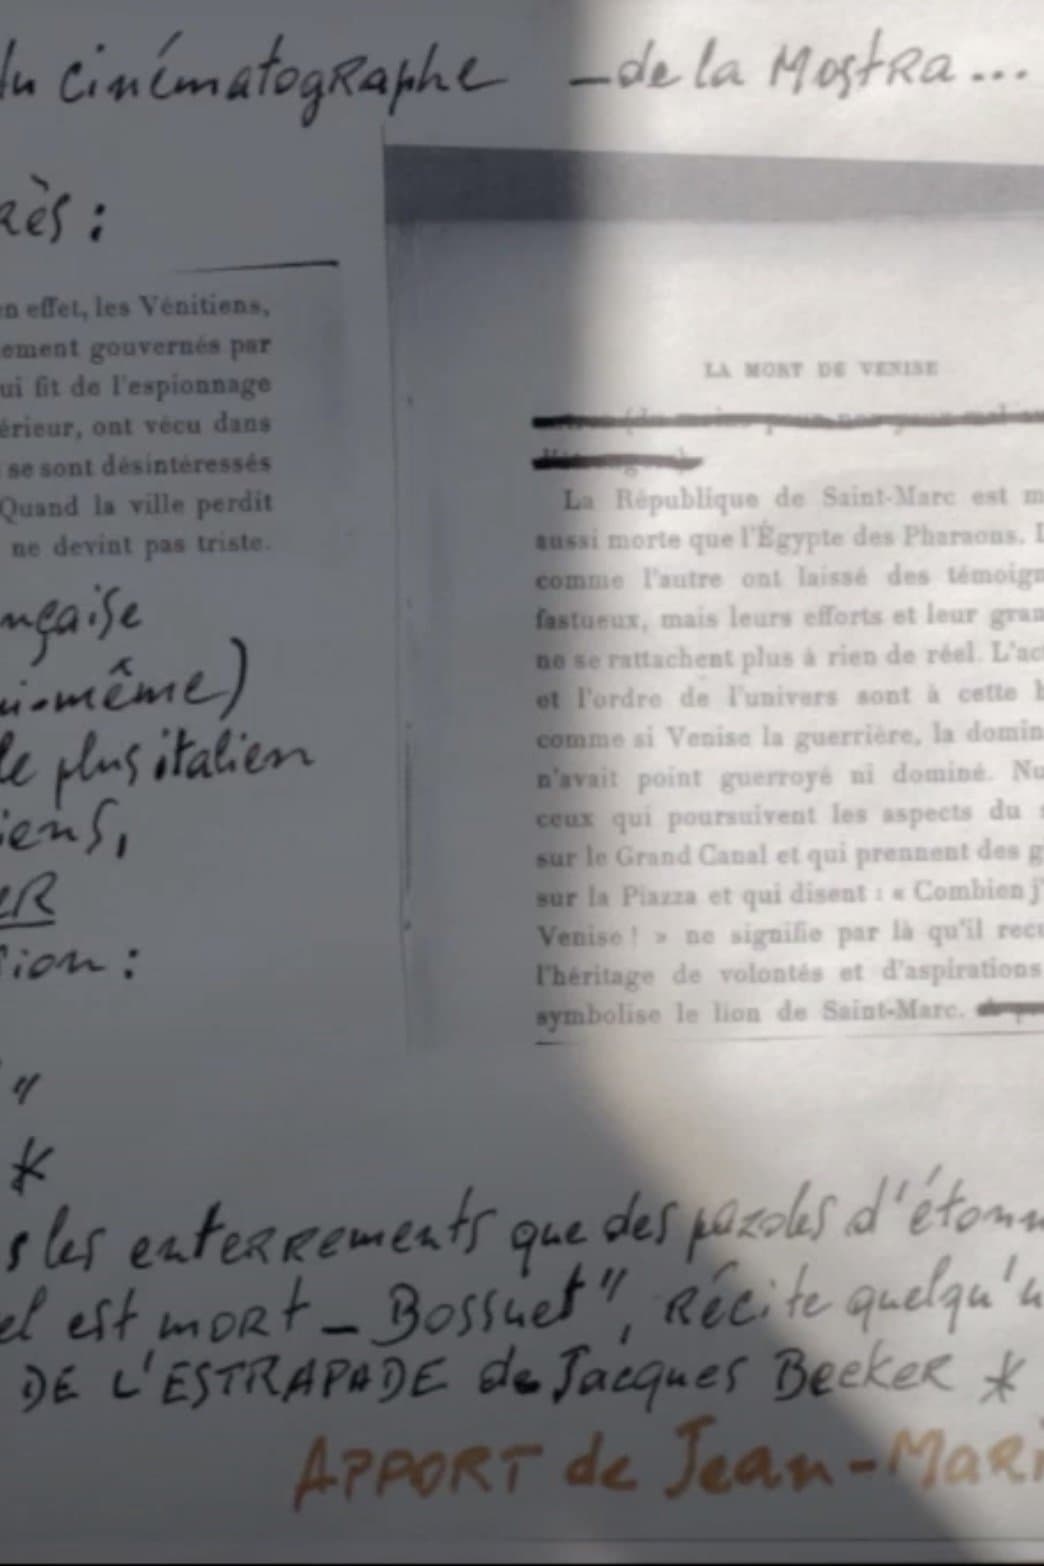 du cinématographe – de la Mostra...
rès :
en effet, les Vénitiens,
ement gouvernés par
ui fit de l'espionnage
érieur, ont vécu dans
se sont désintéressés
Quand la ville perdit
ne devint pas triste.
nçaise
ui-même)
le plus italien
iens,
ER
sion :
"
*
LA MORT DE VENISE
La République de Saint-Marc est m
aussi morte que l'Égypte des Pharaons. L
comme l'autre ont laissé des témoign
fastueux, mais leurs efforts et leur gran
ne se rattachent plus à rien de réel. L'act
et l'ordre de l'univers sont à cette h
comme si Venise la guerrière, la domin
n'avait point guerroyé ni dominé. Nu
ceux qui poursuivent les aspects du s
sur le Grand Canal et qui prennent des g
sur la Piazza et qui disent : « Combien j'
Venise ! » ne signifie par là qu'il recu
l'héritage de volontés et d'aspirations
symbolise le lion de Saint-Marc.
s les enterrements que des paroles d'étonn
el est mort – Bossuet", récite quelqu'u
DE L'ESTRAPADE de Jacques Becker *
APPORT de Jean-Mari